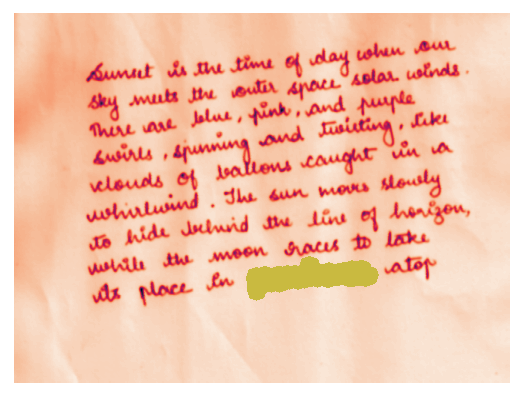 Sunset is the time of day when our
sky meets the outer space solar winds.
There are blue, pink, and purple
swirls, spinning and twisting, like
clouds of balloons caught in a
whirlwind. The sun moves slowly
to hide behind the line of horizon,
while the moon races to take
its place in atop